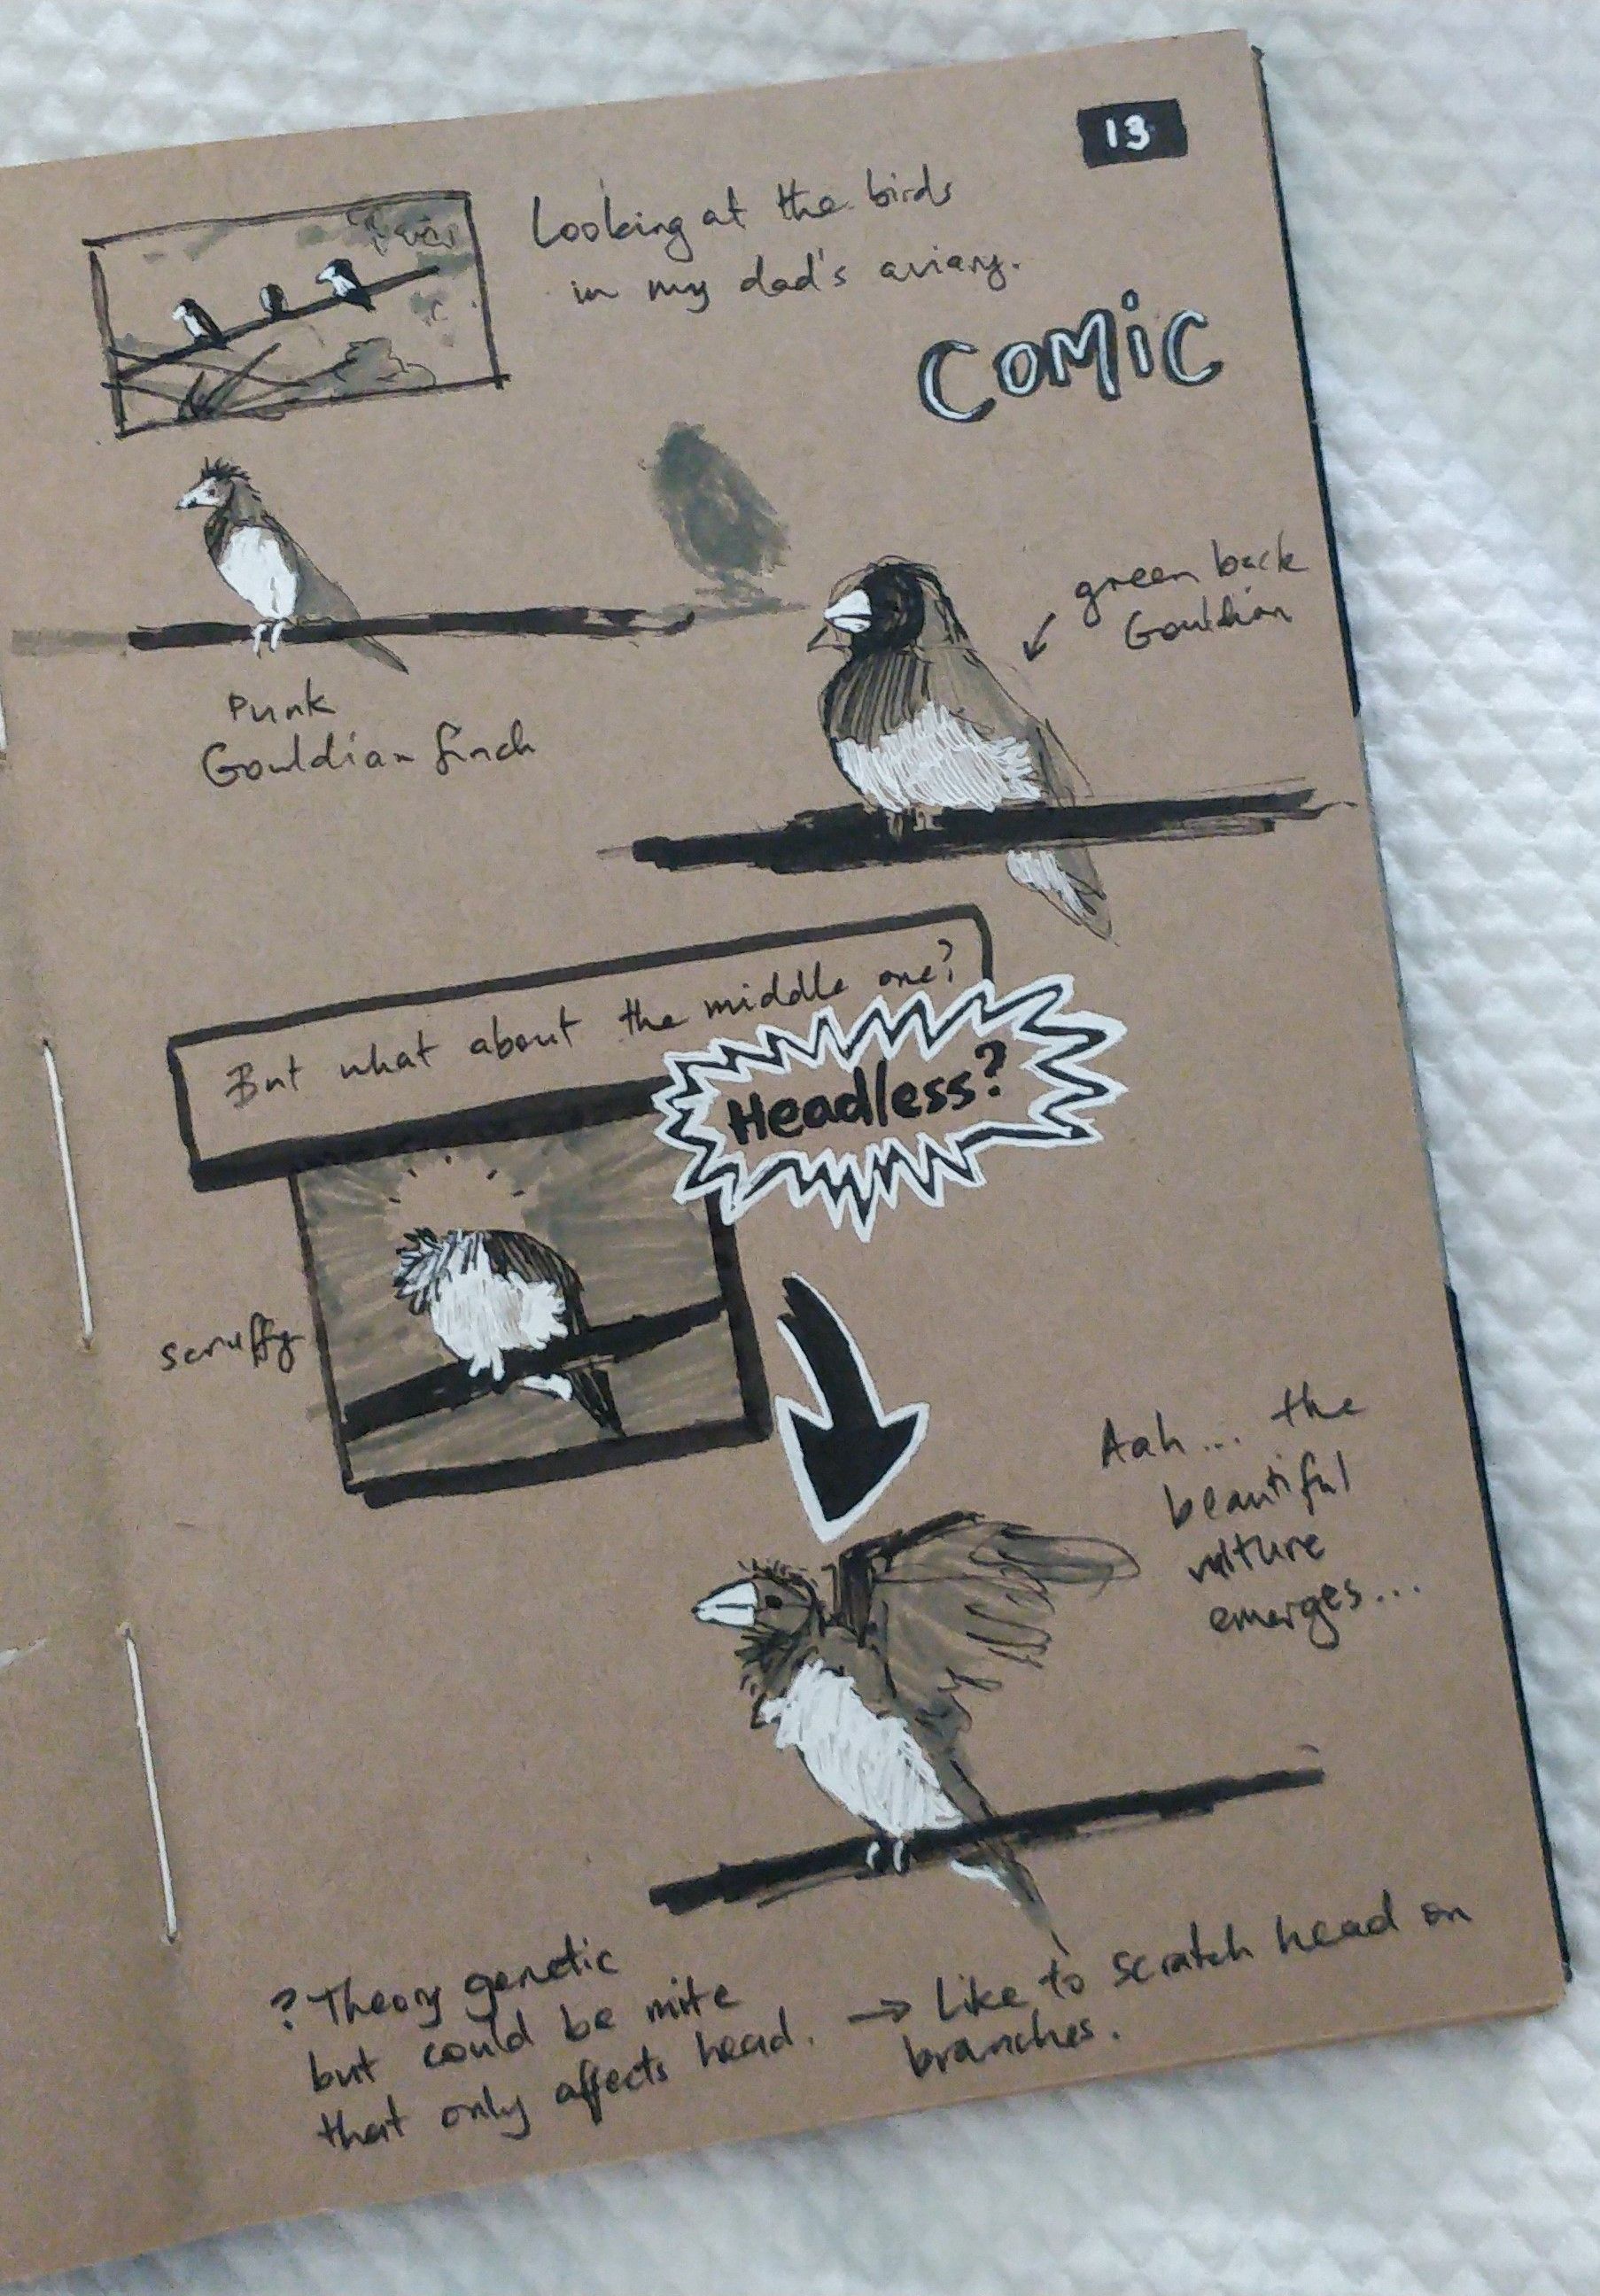 13
Looking at the birds
in my dad's aviary.
COMIC
green back
Gouldian
Punk
Gouldian finch
But what about the middle one?
Headless?
scruffy
Aah... the
beautiful
vulture
emerges...
? Theory genetic
but could be mite
that only affects head.
→ Like to scratch head on
branches.